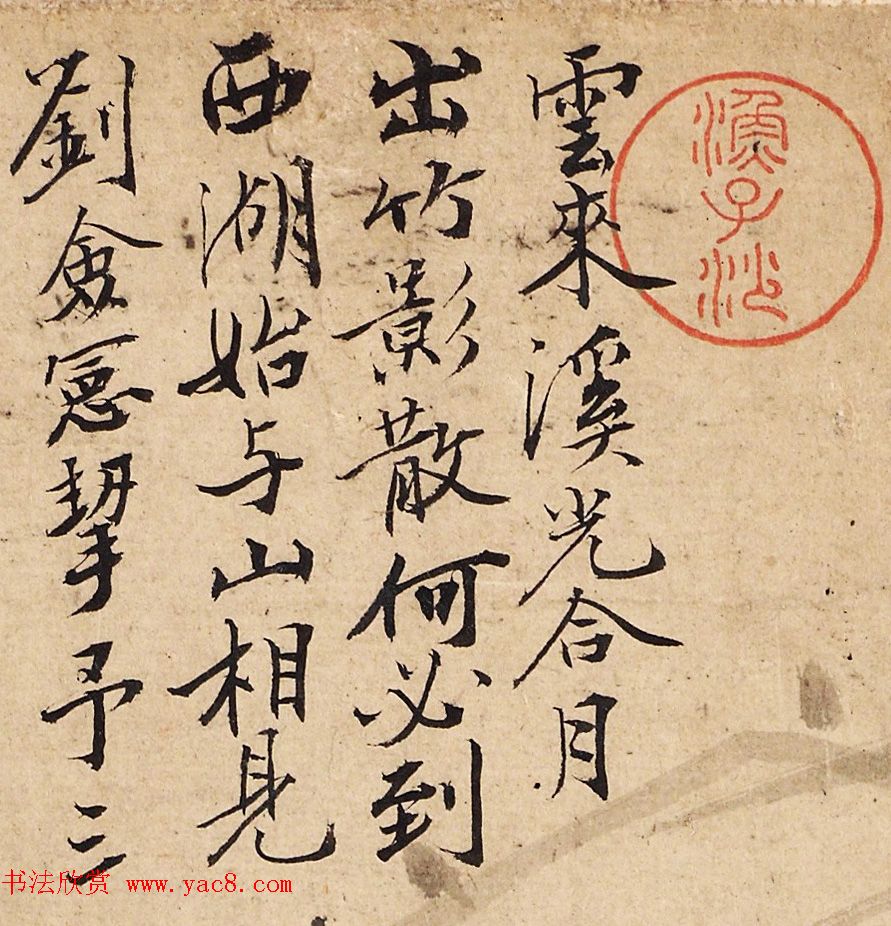 雲來溪光合月
出竹影散何必到
西湖始与山相見
劉僉憲挈予三
漁子沙
书法欣赏 www.yac8.com